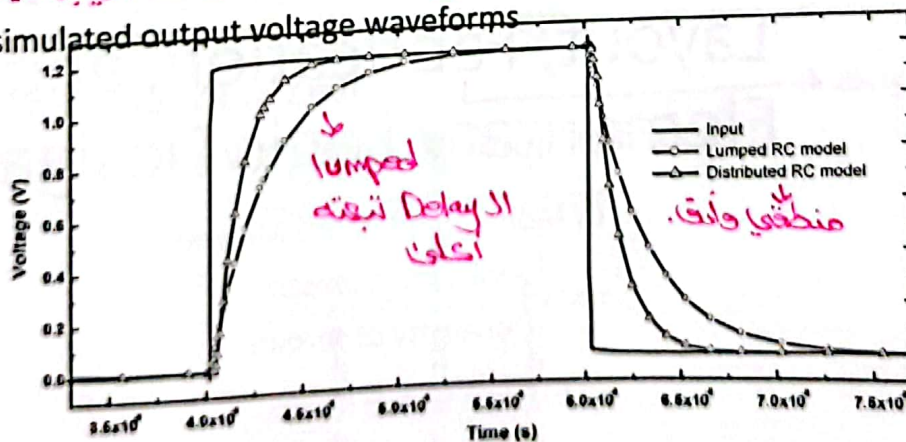 simulated output voltage waveforms
1.2
1.0
0.8
0.6
0.4
0.2
0.0
Voltage (V)
Input
Lumped RC model
Distributed RC model
lumped
ال Delay تبعته
اعلى
منطقي وأدق.
4.0x10
5.0x10
5.5x10
6.0x10
6.5x10
7.0x10
7.5x10
Time (s)